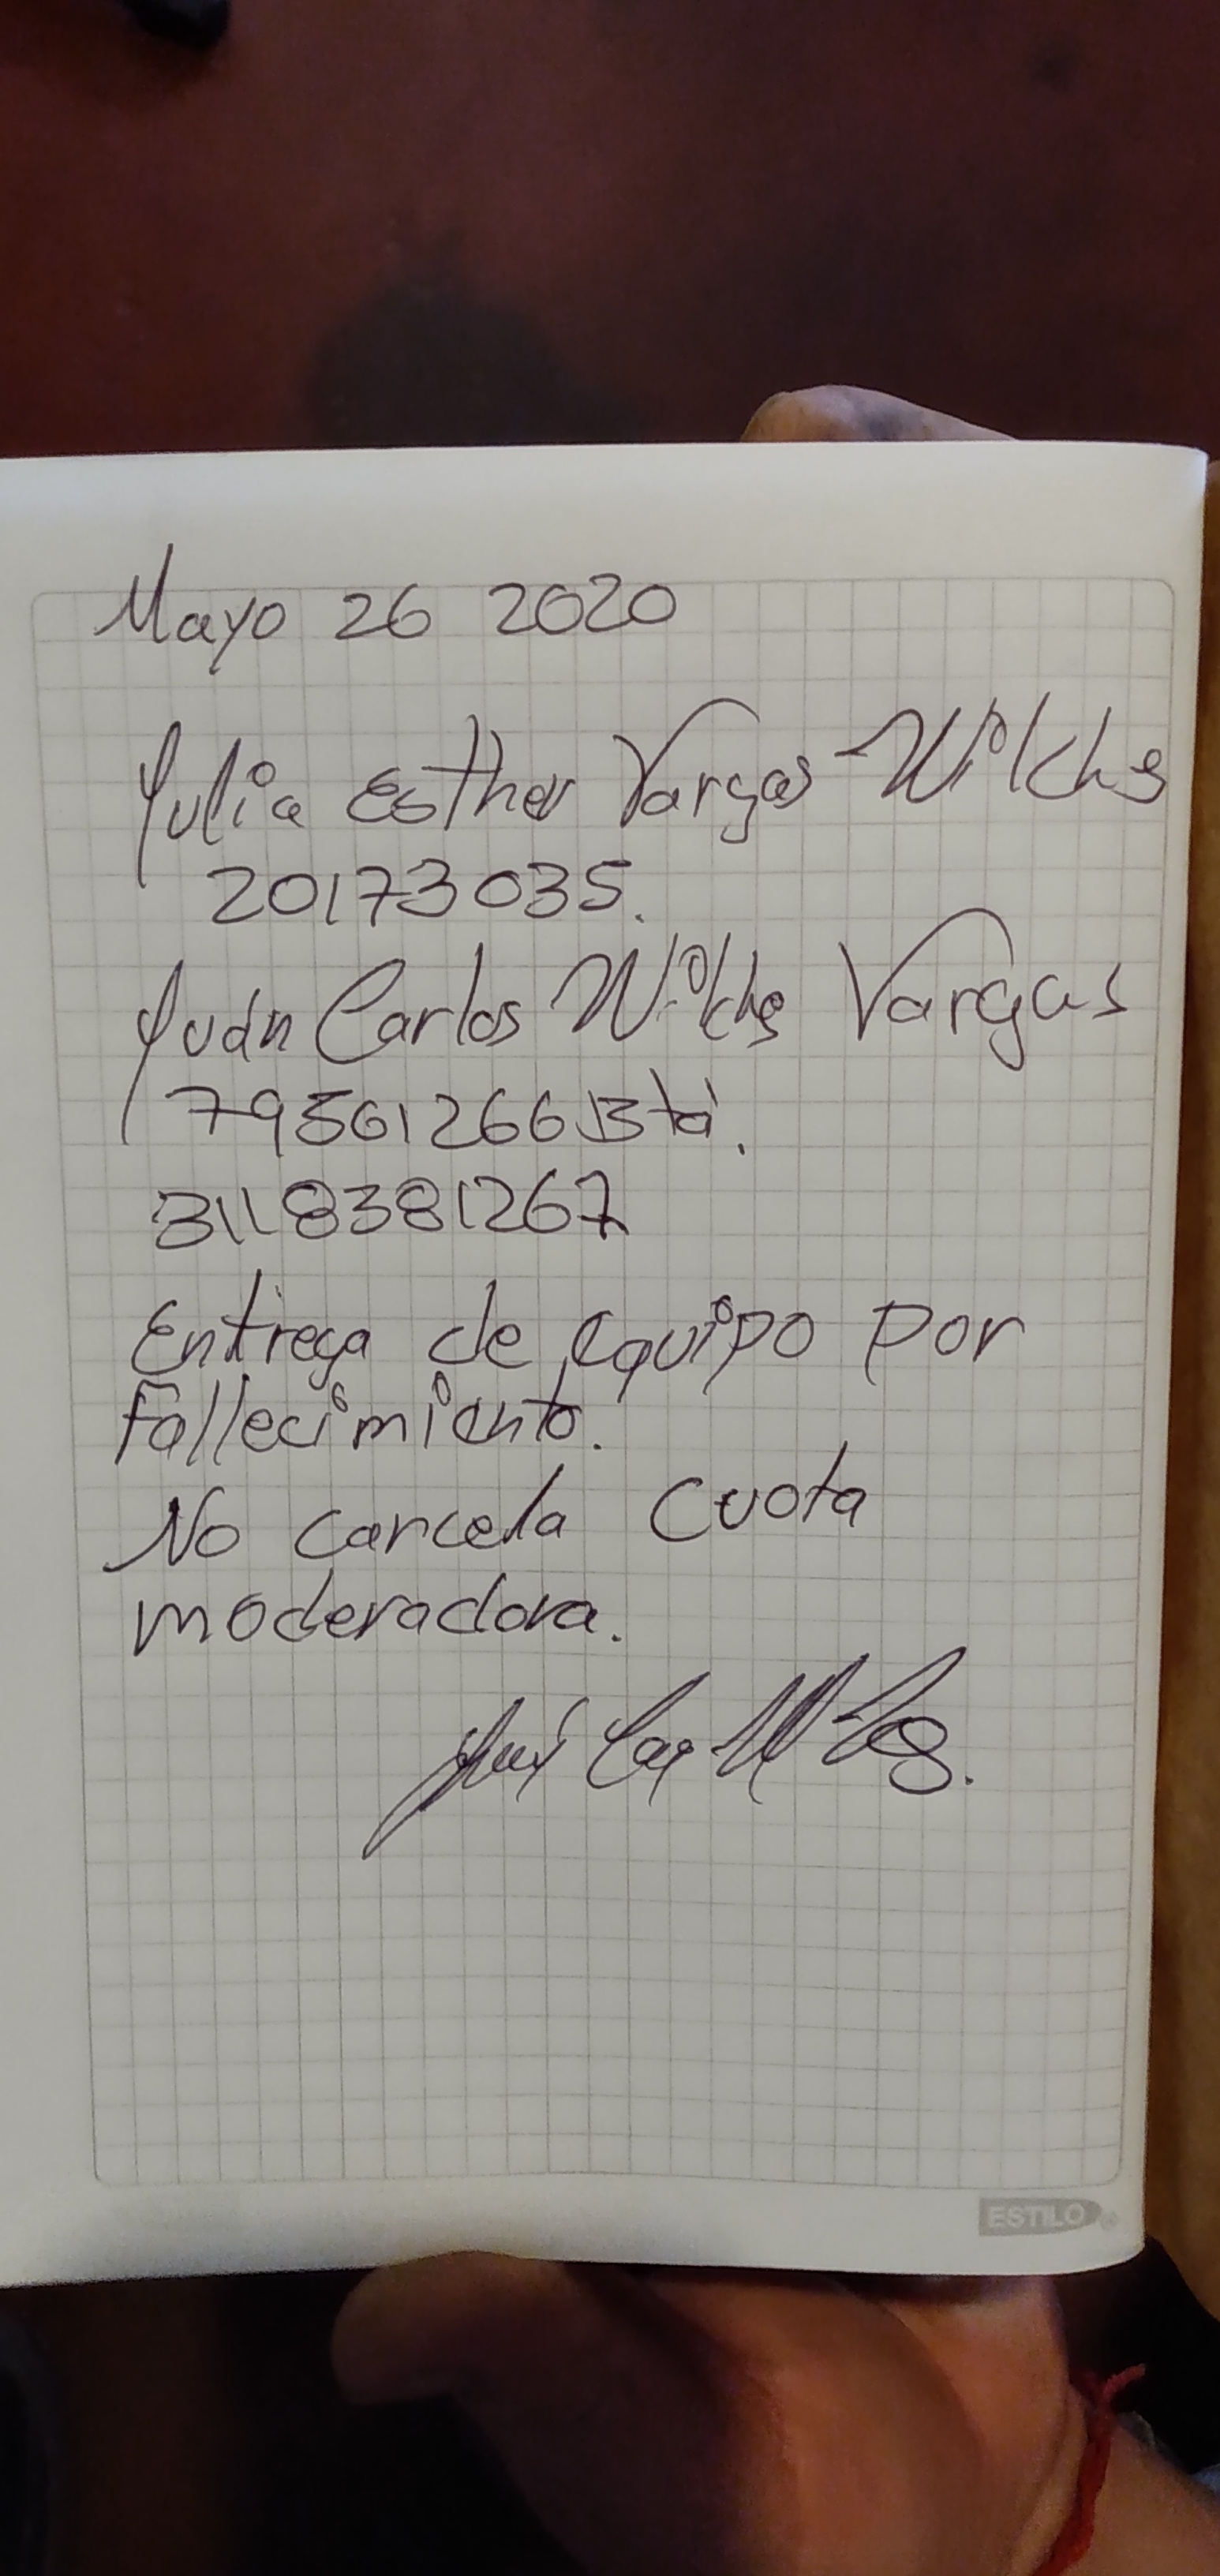 Mayo 26 2020
Julia Esther Vargas Wilches
20173035.
Juan Carlos Wilches Vargas
79561266 Btá.
3118381267
Entrega de equipo por
Fallecimiento.
No carcela cuota
moderadora.
ESTILO